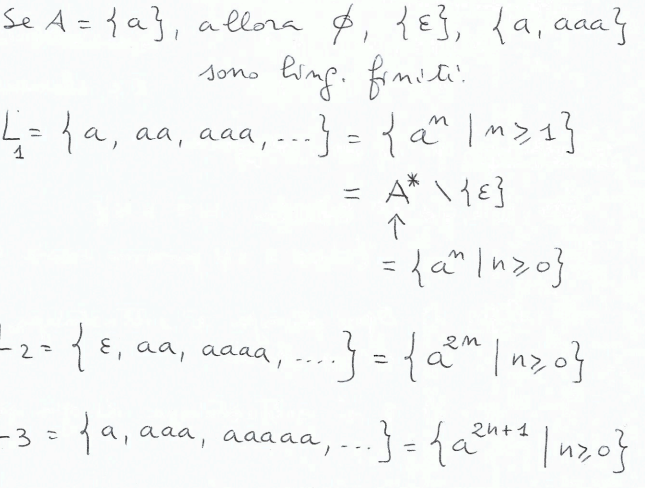 Se A = {a}, allora ∅, {ε}, {a, aaa}
sono ling. finiti.
L₁ = {a, aa, aaa, ...} = {aⁿ | n ≥ 1}
= A* \ {ε}
↑
= {aⁿ | n ≥ 0}
L₂ = {ε, aa, aaaa, ....} = {a²ⁿ | n ≥ 0}
L₃ = {a, aaa, aaaaa, ...} = {a²ⁿ⁺¹ | n ≥ 0}